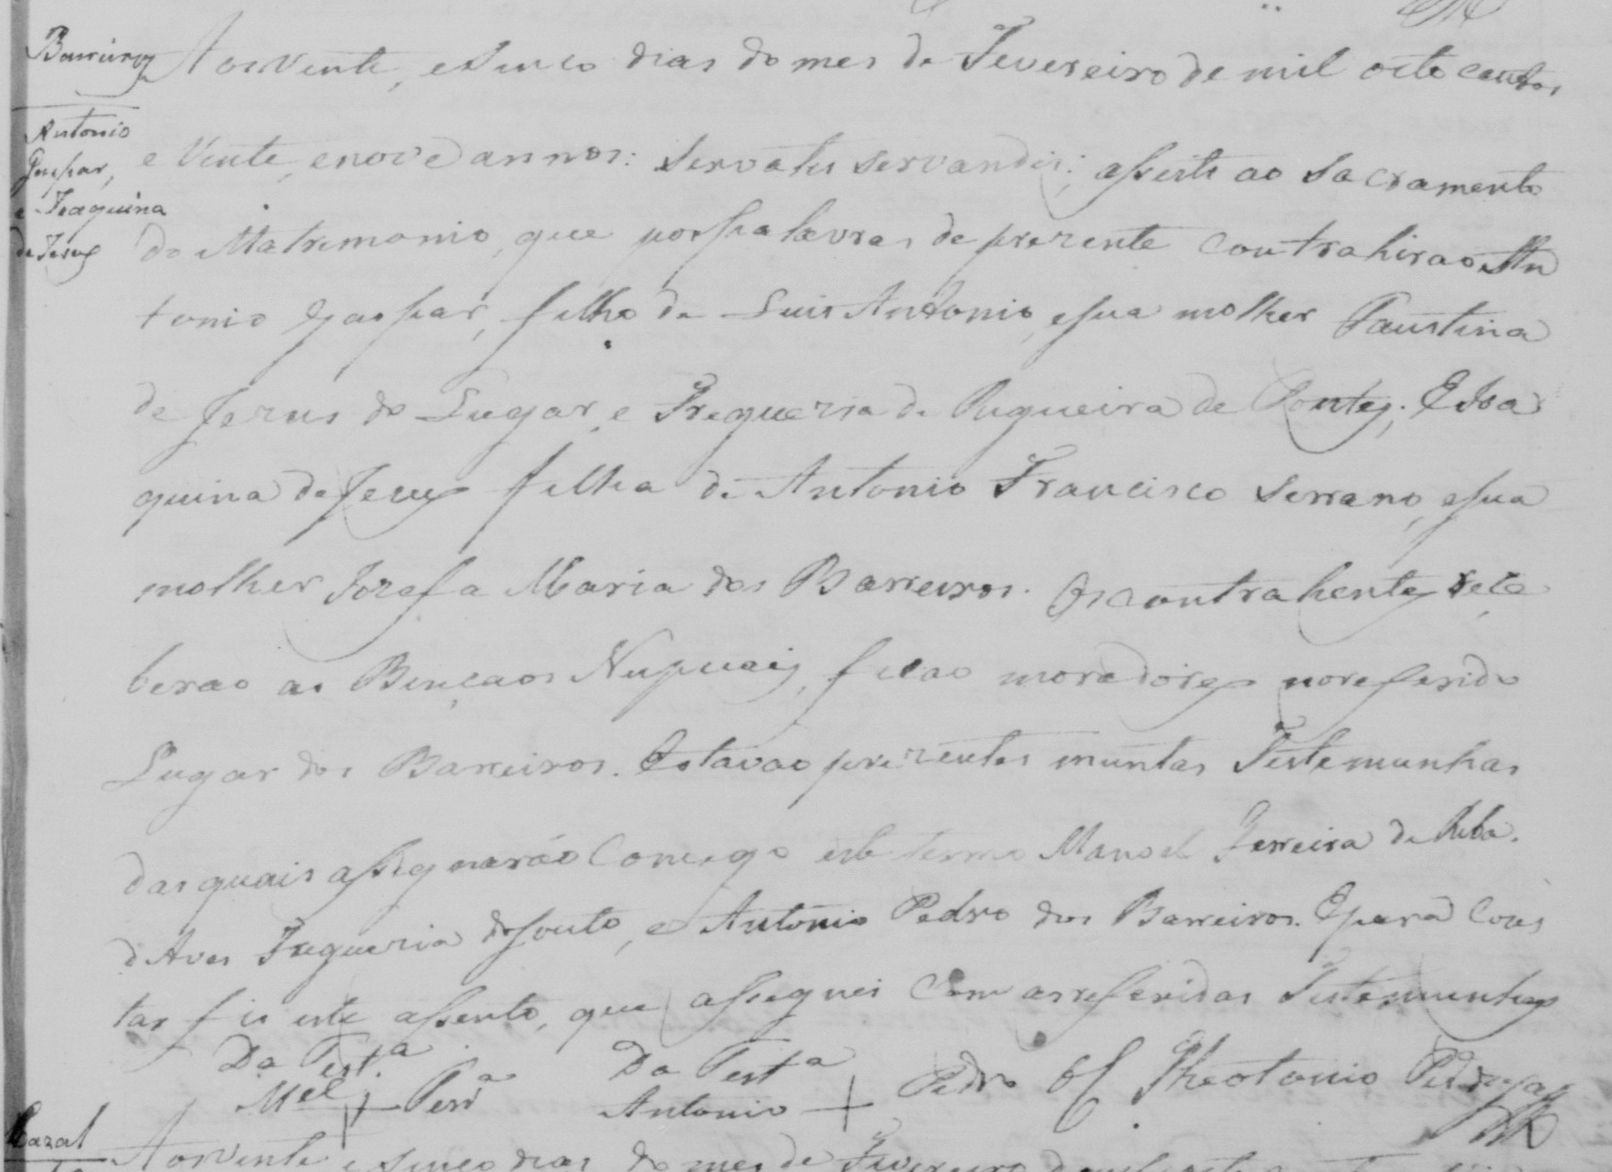 Barreiros
Antonio
Gaspar,
e Joaquina
de Jesus
Aos vente, e sinco dias do mes de Fevereiro de mil oito centos
e vente, e nove annos: servatis servandis; assisti ao Sacramento
do Matrimonio, que por palavras de prezente contrahirao An
tonio Gaspar, filho de Luis Antonio, e sua molher Faustina
de Jezus do Lugar, e Freguezia de Regueira de Pontes; E Joa
quina de Jesus filha de Antonio Francisco Serrano, e sua
molher Jozefa Maria dos Barreiros. Os contrahentes rece
berao as Bençaos Nupciais, ficao moradores no referido
Lugar dos Barreiros. Estavao prezentes muntas Testemunhas
das quais assignarão Comigo este termo Manoel Ferreira de Riba.
d'Aves Freguezia do Souto, e Antonio Pedro dos Barreiros. E para Cons
tar fis este assento, que assignei Com as referidas Testemunhas
Da Test.a
Mel + Ferra
Da Testa
Antonio + Pedro
Theotonio
Cazal
Aos vente e sinco dias do mes de Fevereiro de mil oito